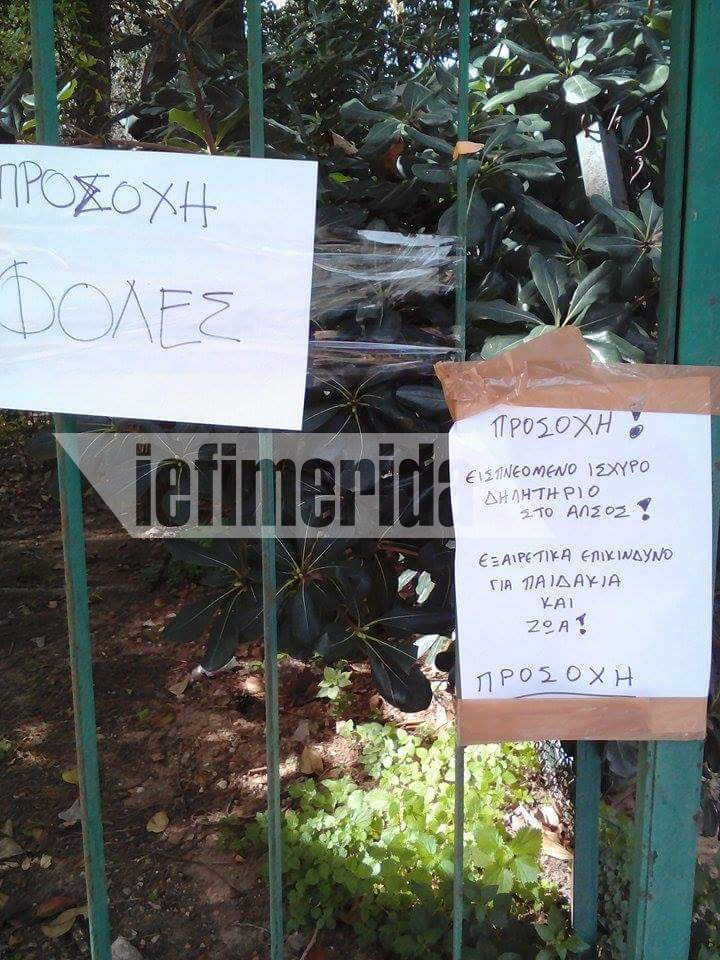 ΠΡΟΣΟΧΗ
ΦΟΛΕΣ
iefimerida
ΠΡΟΣΟΧΗ!
ΕΙΣΠΝΕΟΜΕΝΟ ΙΣΧΥΡΟ
ΔΗΛΗΤΗΡΙΟ
ΣΤΟ ΑΛΣΟΣ!
ΕΞΑΙΡΕΤΙΚΑ ΕΠΙΚΙΝΔΥΝΟ
ΓΙΑ ΠΑΙΔΑΚΙΑ
ΚΑΙ
ΖΩΑ!
ΠΡΟΣΟΧΗ